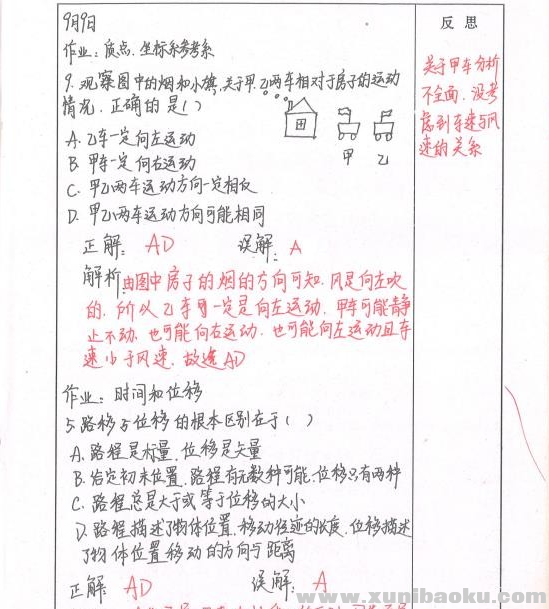 9月9日
反思
作业:质点.坐标系参考系
9.观察图中的烟和小旗,关于甲.乙两车相对于房子的运动
情况.正确的是( )
A.乙车一定向左运动
B.甲车一定向右运动
C.甲乙两车运动方向一定相反
D.甲乙两车运动方向可能相同
甲 乙
正解:AD 误解:A
解析:由图中房子的烟的方向可知.风是向左吹
的.所以乙车一定是向左运动.甲车可能静
止不动.也可能向右运动.也可能向左运动且车
速小于风速.故选AD
关于甲车分析
不全面.没考
虑到车速与风
速的关系
作业:时间和位移
5.路移与位移的根本区别在于( )
A.路程是标量.位移是矢量
B.给定初末位置.路程有无数种可能.位移只有两种
C.路程总是大于或等于位移的大小
D.路程描述了物体位置.移动径迹的长度.位移描述
了物体位置移动的方向与距离
正解:AD 误解:A
www.xunibaoku.com